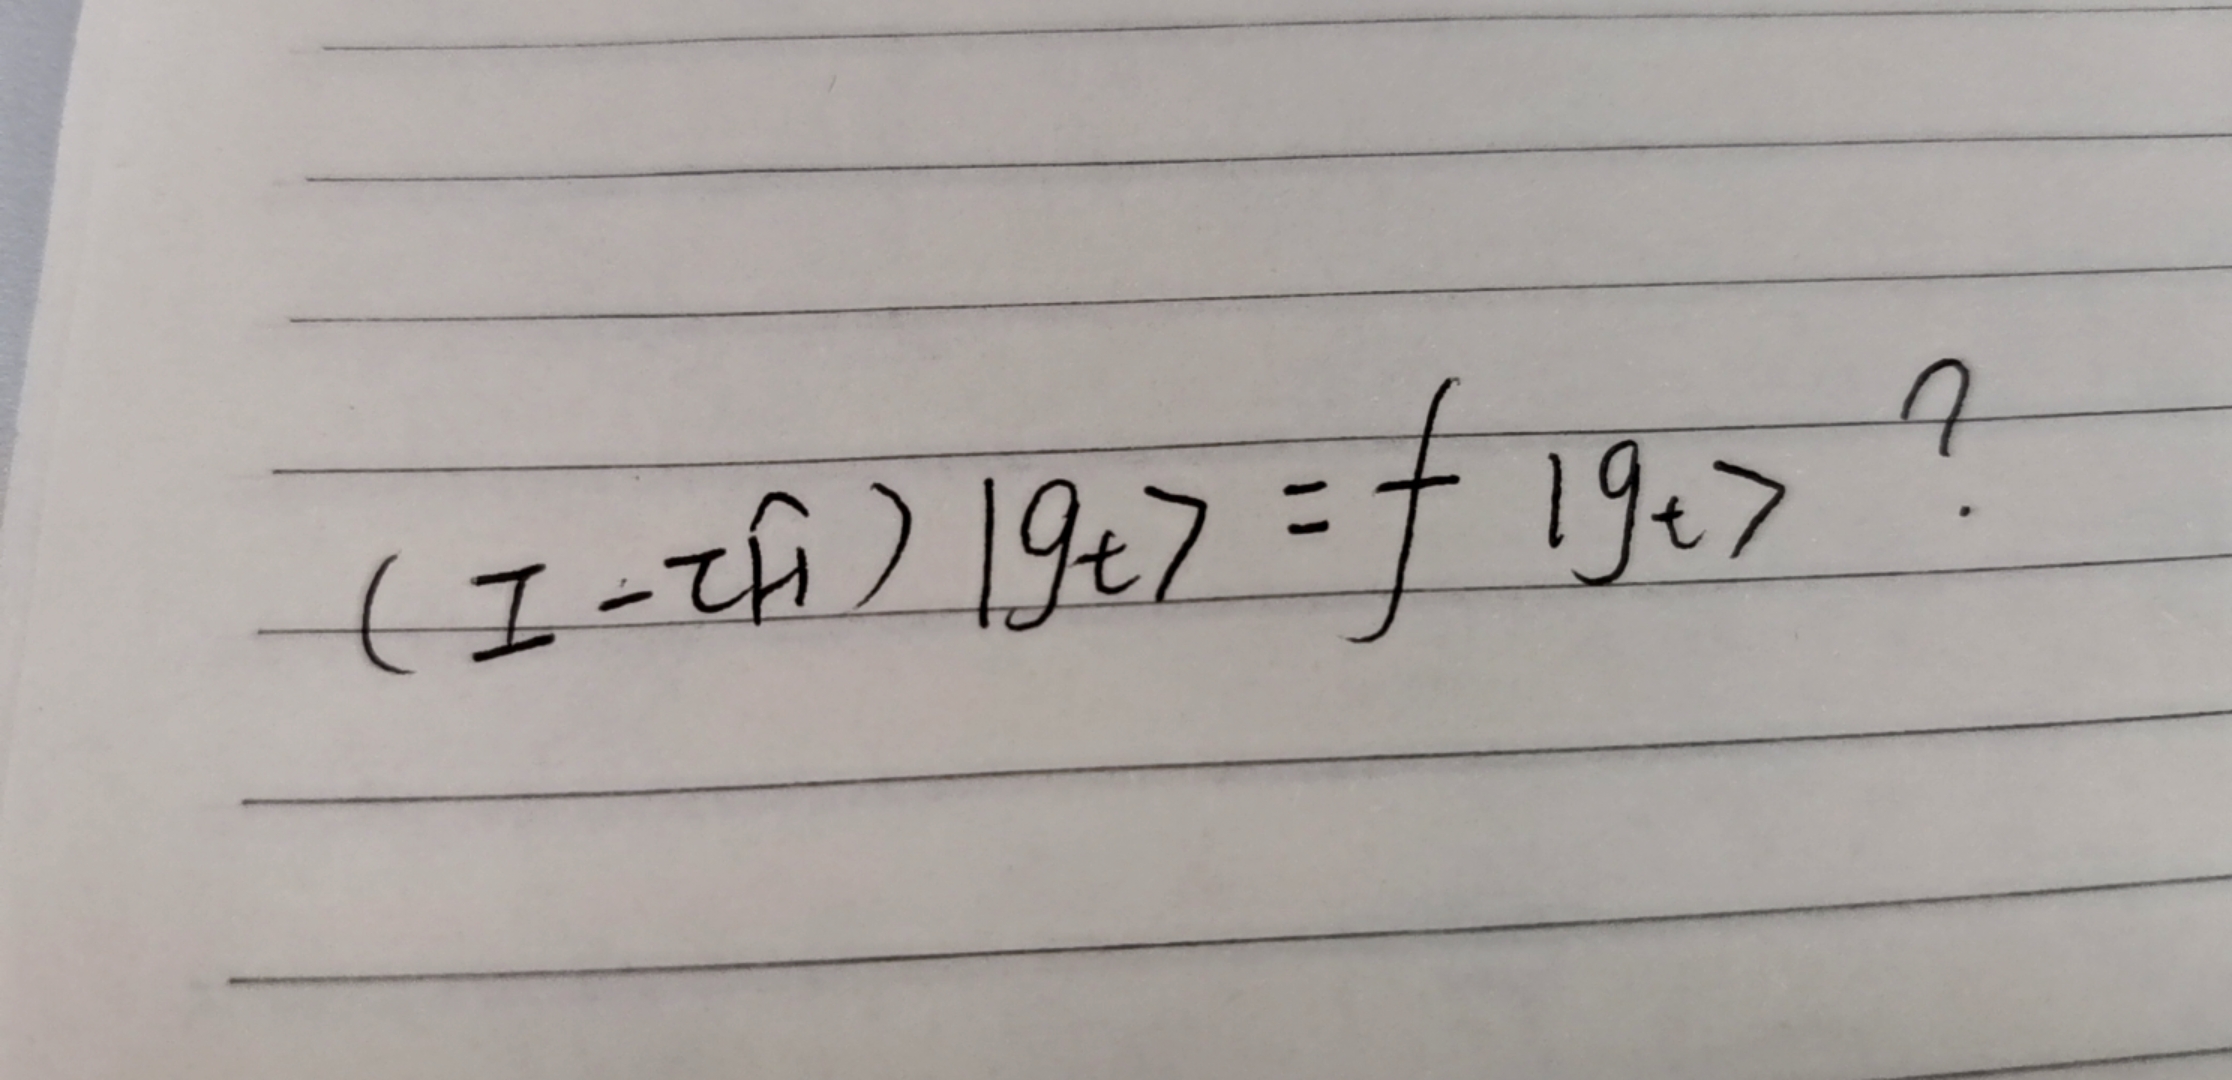 (I - τĤ) |g_t> = f |g_t> ?